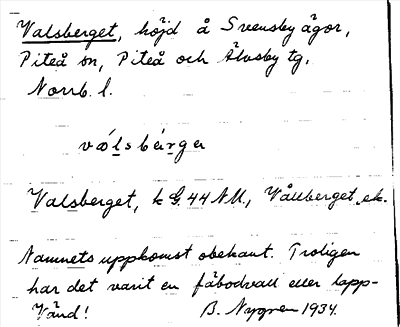 Valsberget, höjd å Svensby ägor,
Piteå sn, Piteå och Älvsby tg.
Norrb. l.
valsbärge
Valsberget, k G. 44 NU., Vållberget, ek.
Namnets uppkomst obekant. Troligen
har det varit en fäbodvall eller lapp-
Vänd! B. Nygren 1934.